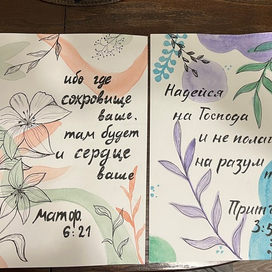 ибо где
сокровище
ваше,
там будет
и сердце
ваше
Матф.
6:21
Надейся
на Господа
и не полаг
на разум
Притч
3:5